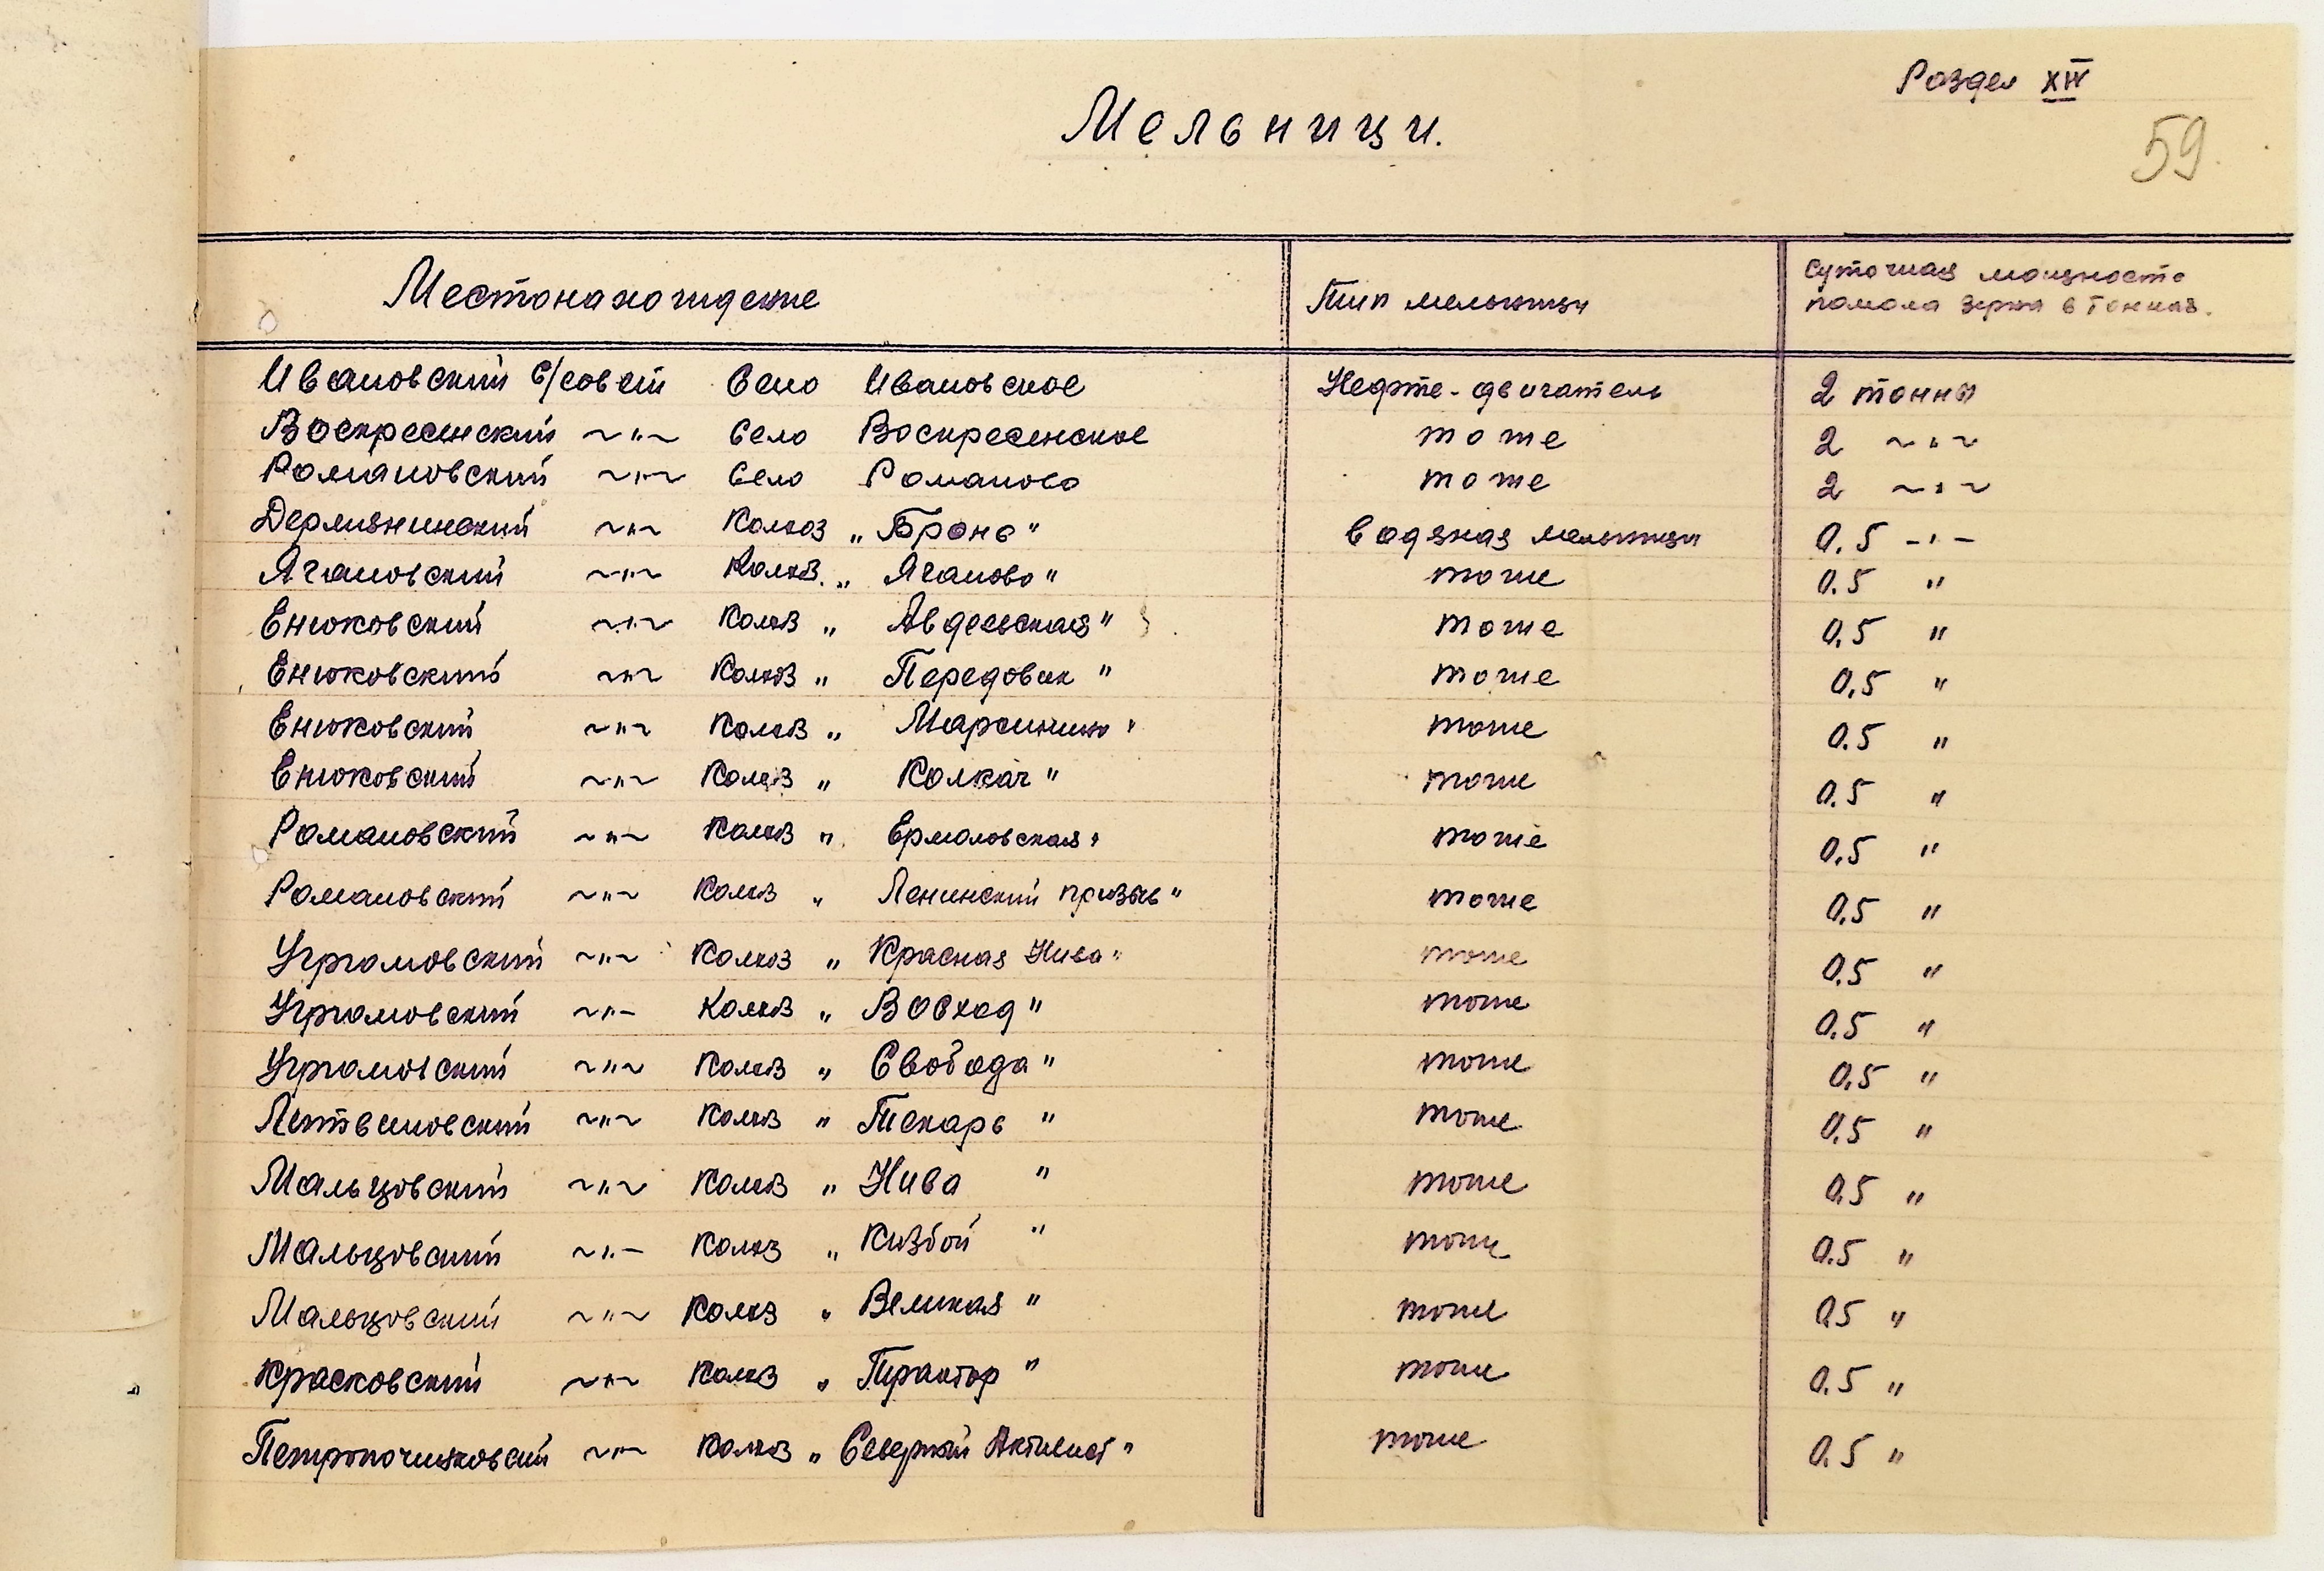 Раздел XIV
59.
Мельници.
Местонахождение Тип мельници Суточная мощность
помола зерна в тоннах.
Ивановский с/совет Село Ивановское Нефте-двигатель 2 тонны
Воскресенский ~"~ Село Воскресенское тоже 2 ~"~
Романовский ~"~ Село Романово тоже 2 ~"~
Дермянинский ~"~ Колхоз „Бронь" водяная мельници 0.5 -"-
Ягановский ~"~ Колхоз „Яганово" тоже 0.5 "
Енюковский ~"~ Колхоз „Авдеевская" тоже 0,5 "
Енюковский ~"~ Колхоз „Передовик" тоже 0,5 "
Енюковский ~"~ Колхоз „Марсинино" тоже 0.5 "
Енюковский ~"~ Колхоз „Колкач" тоже 0.5 "
Романовский ~"~ Колхоз „Ермоловская" тоже 0,5 "
Романовский ~"~ Колхоз „Ленинский призыв" тоже 0,5 "
Угрюмовский ~"~ Колхоз „Красная Нива" тоже 0,5 "
Угрюмовский ~"~ Колхоз „Восход" тоже 0.5 "
Угрюмовский ~"~ Колхоз „Свобода" тоже 0,5 "
Литвиновский ~"~ Колхоз „Пекарь" тоже 0,5 "
Мальцовский ~"~ Колхоз „Нива" тоже 0.5 "
Мальцовский ~"~ Колхоз „Кизбой" тоже 0.5 "
Мальцовский ~"~ Колхоз „Великая" тоже 0.5 "
Красковский ~"~ Колхоз „Трактор" тоже 0.5 "
Петропочинковский ~"~ Колхоз „Северный Активист" тоже 0.5 "